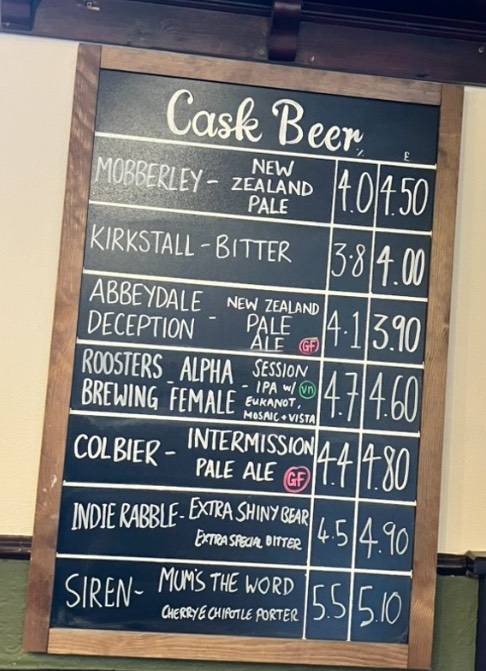 Cask Beer
% £
MOBBERLEY - NEW ZEALAND PALE 4.0 4.50
KIRKSTALL - BITTER 3.8 4.00
ABBEYDALE DECEPTION - NEW ZEALAND PALE ALE GF 4.1 3.90
ROOSTERS BREWING - ALPHA FEMALE - SESSION IPA W/ VN EUKANOT, MOSAIC + VISTA 4.7 4.60
COLBIER - INTERMISSION PALE ALE GF 4.4 4.80
INDIE RABBLE - EXTRA SHINY BEAR EXTRA SPECIAL BITTER 4.5 4.90
SIREN - MUM'S THE WORD CHERRY & CHIPOTLE PORTER 5.5 5.10